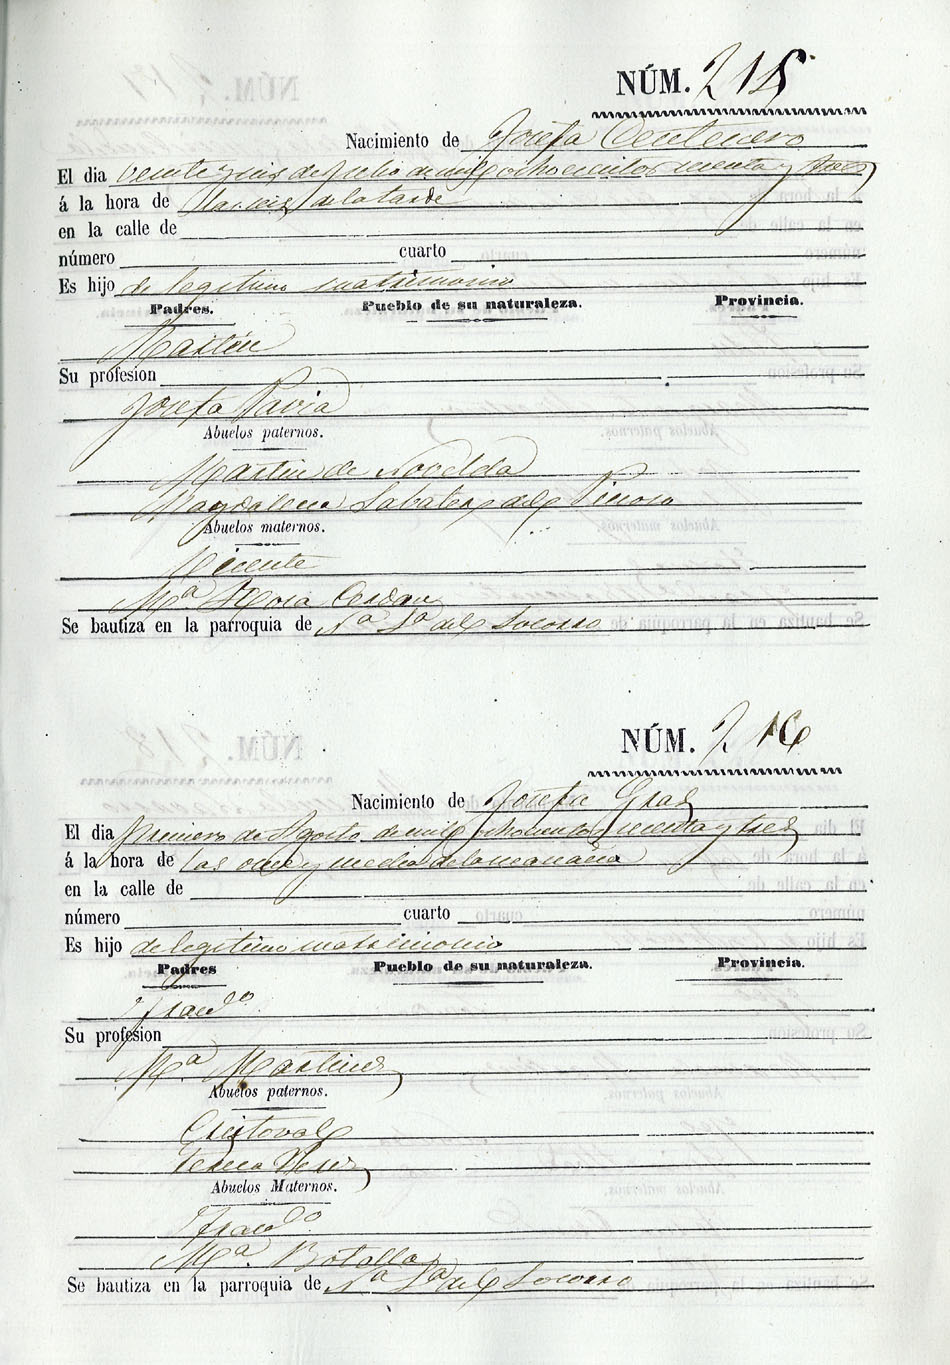 NÚM. 215
Nacimiento de Josefa Centenero
El dia veinte y seis de Julio de mil ochocientos sesenta y tres
á la hora de las seis de la tarde
en la calle de
número cuarto
Es hijo de legitimo matrimonio
Padres. Pueblo de su naturaleza. Provincia.
Martin
Su profesion
Josefa Pavia
Abuelos paternos.
Martin de Novelda
Magdalena Sabater del Pinoso
Abuelos maternos.
Vicente
Mª Rosa Cerdan
Se bautiza en la parroquia de Nª Sª del Socorro
NÚM. 216
Nacimiento de Josefa Gras
El dia primero de Agosto de mil ochocientos sesenta y tres
á la hora de las once y media de la mañana
en la calle de
número cuarto
Es hijo de legitimo matrimonio
Padres Pueblo de su naturaleza. Provincia.
Franco
Su profesion
Mª Martinez
Abuelos paternos.
Cristoval
Teresa
Abuelos Maternos.
Franco
Mª Botella
Se bautiza en la parroquia de Nª Sª del Socorro